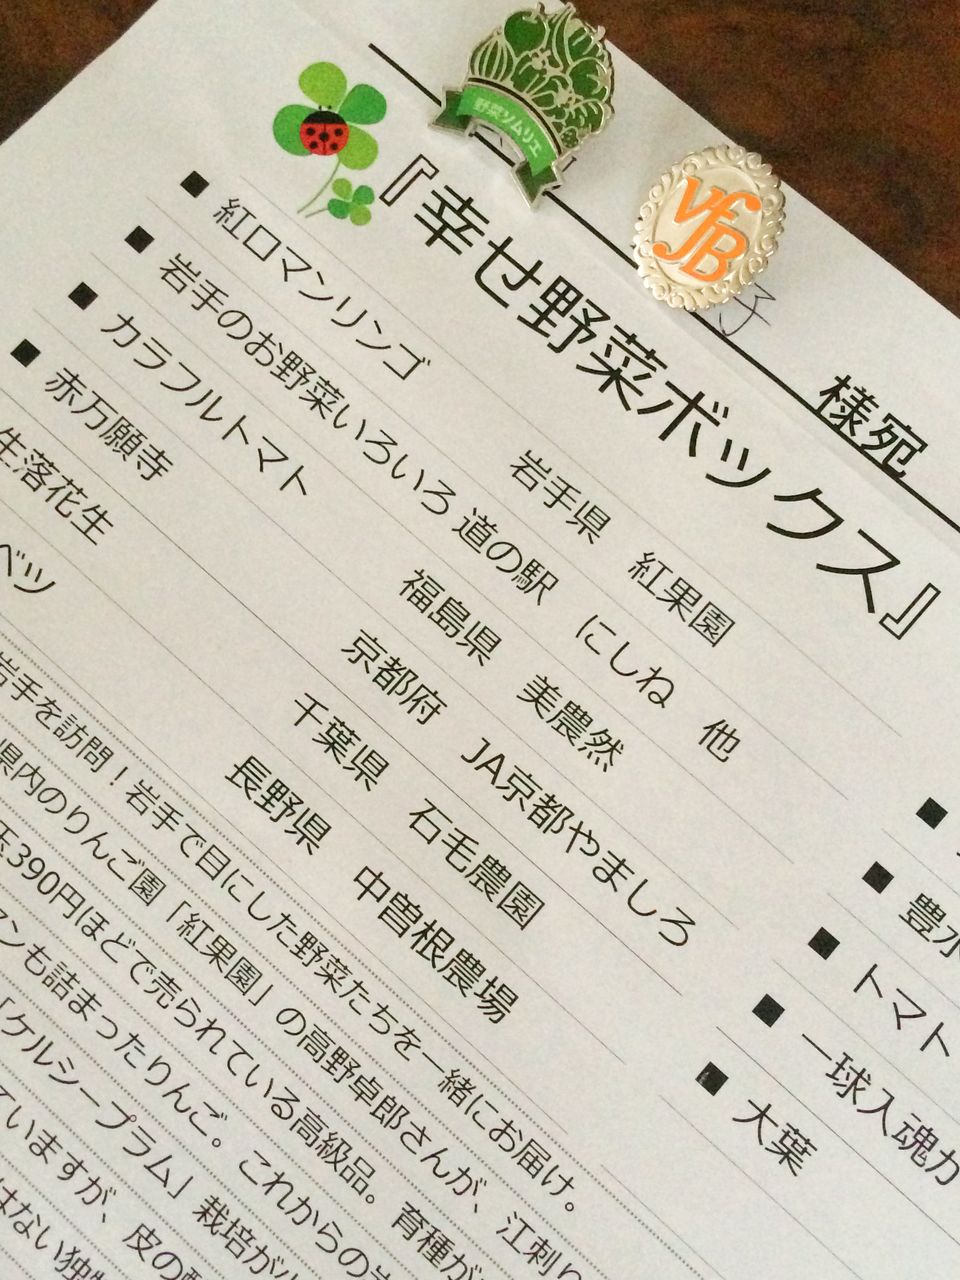 野菜ソムリエ
VfB
子
様宛
『幸せ野菜ボックス』
■ 紅ロマンリンゴ 岩手県 紅果園
■ 岩手のお野菜いろいろ 道の駅 にしね 他
■ カラフルトマト 福島県 美農然
■ 赤万願寺 京都府 JA京都やましろ
生落花生 千葉県 石毛農園
ベツ 長野県 中曽根農場
■
■ 豊水
■ トマト
■ 一球入魂か
■ 大葉
岩手を訪問！岩手で目にした野菜たちを一緒にお届け。
県内のりんご園「紅果園」の高野卓郎さんが、江刺り
玉390円ほどで売られている高級品。育種が
マンも詰まったりんご。これからの
「ケルシープラム」栽培が
ていますが、皮の
はない独